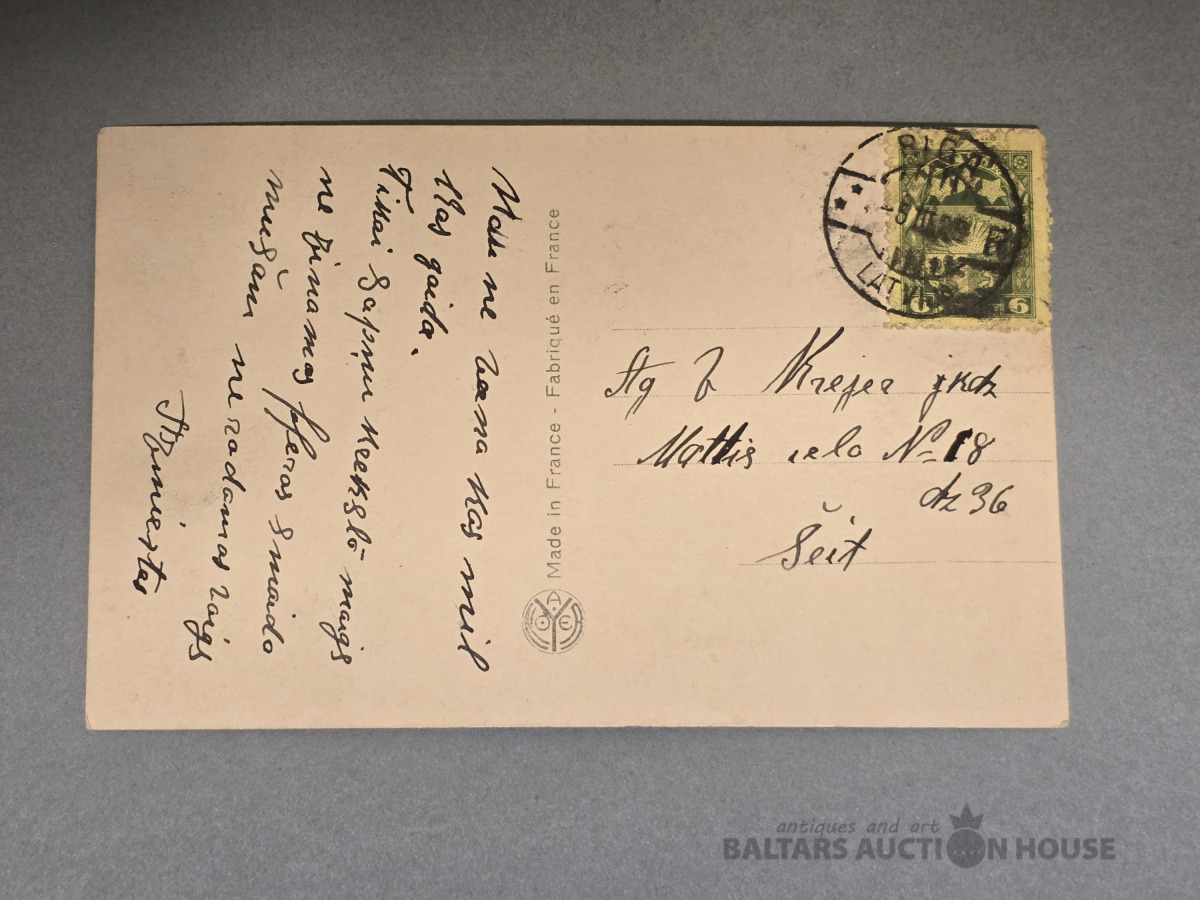 Man ne vena kas mil
Kas gaida.
Tikai Sapņu Krekslō maigs
ne zinamas sferas smaida
mušām neradamas vaigs
Made in France - Fabriqué en France
RIGA
LATVIJA
6 6
Krejer jkdz
Mattis iela № 18
dz 36
Šeit
antiques and art
BALTARS AUCTION HOUSE